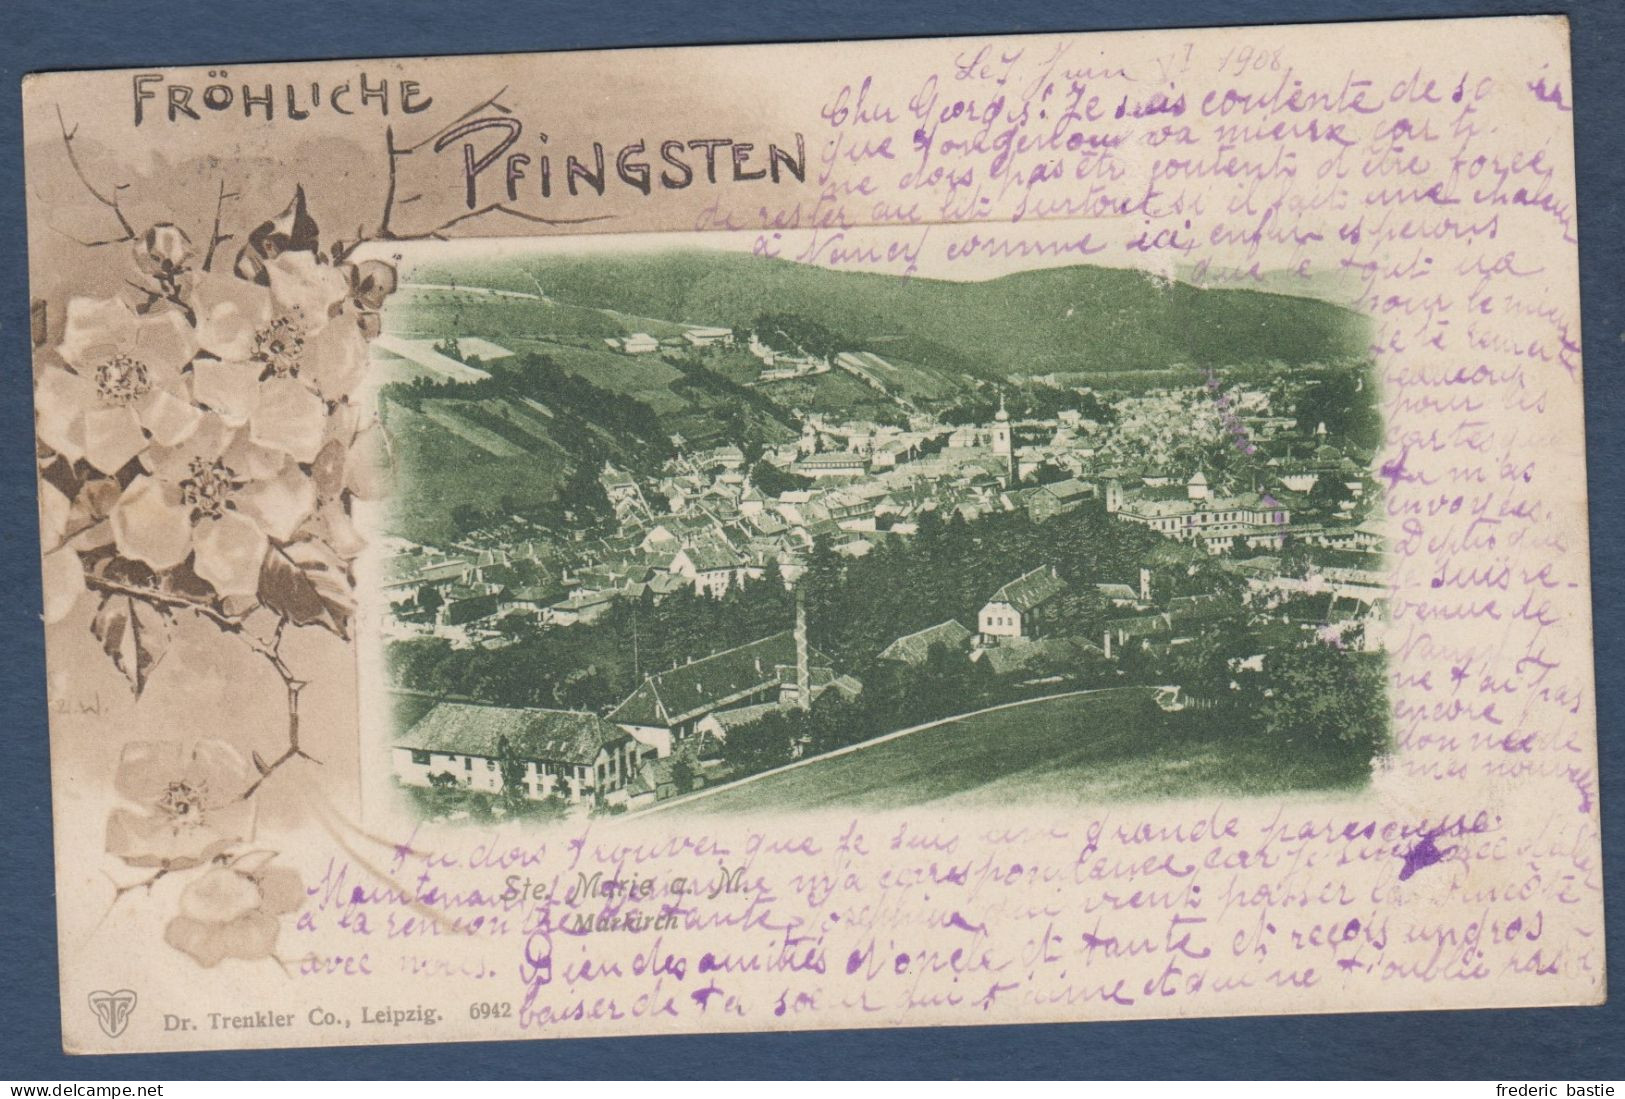 FRÖHLICHE
PFINGSTEN
Le 7. Juin 1908
Cher Georges! Je suis contente de
que va mieux car tu
ne dois pas êtr content d'être forcé
de rester au lit surtout si il fait une chaleur
à Nancy comme ici, enfin esperons
que le tout ira
pour le mieux
Je te remercie
beaucoup
pour les
cartes que
tu m'as
envoyées.
Depuis que
je suis re-
venue de
Nancy je
ne t'ai pas
encore
donné de
mes nouvelles
tu dois trouver que je suis une grande paresseuse
Maintenant je m'a correspondance car je suis
à la rencontre de tante Josephine qui vient passer la Pencôte
avec nous. Bien des amitiés d'oncle et tante et reçois un gros
baiser de ta sœur qui t'aime et qui ne t'oublie pas
Ste. Marie a. M.
Markirch
Z. W.
Dr. Trenkler Co., Leipzig. 6942
frederic bastie